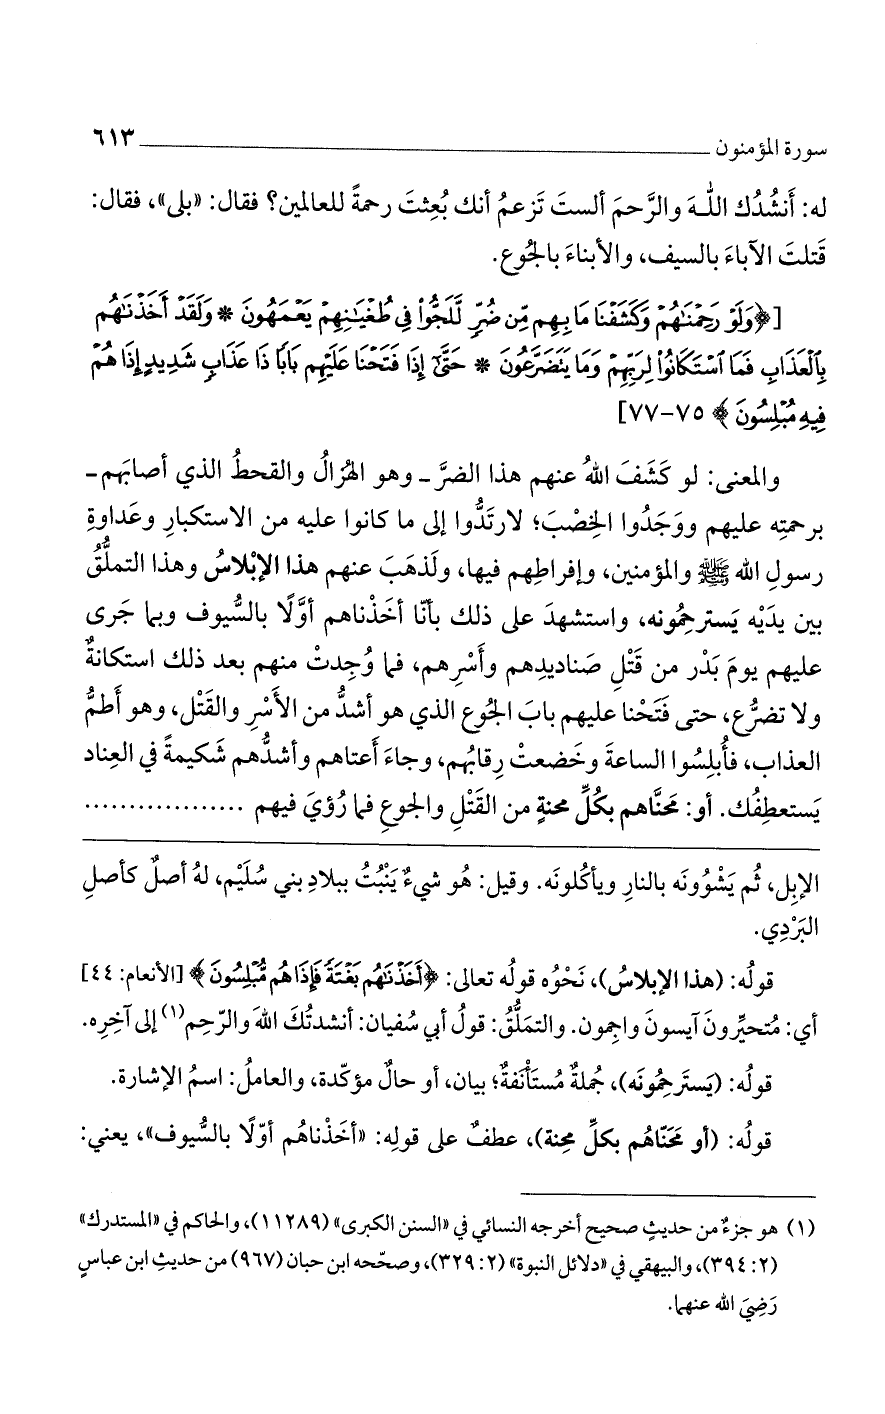 سورة المؤمنون ٦١٣
له: أَنشُدُك اللهَ والرَّحمَ ألستَ تَزعمُ أنك بُعِثتَ رحمةً للعالمين؟ فقال: «بلى»، فقال:
قَتلتَ الآباءَ بالسيف، والأبناءَ بالجُوع.
[﴿وَلَوْ رَحِمْنَٰهُمْ وَكَشَفْنَا مَا بِهِم مِّن ضُرٍّ لَّلَجُّوا۟ فِى طُغْيَٰنِهِمْ يَعْمَهُونَ * وَلَقَدْ أَخَذْنَٰهُم
بِٱلْعَذَابِ فَمَا ٱسْتَكَانُوا۟ لِرَبِّهِمْ وَمَا يَتَضَرَّعُونَ * حَتَّىٰٓ إِذَا فَتَحْنَا عَلَيْهِم بَابًا ذَا عَذَابٍ شَدِيدٍ إِذَا هُمْ
فِيهِ مُبْلِسُونَ﴾ ٧٥-٧٧]
والمعنى: لو كَشَفَ اللهُ عنهم هذا الضرَّ ـ وهو الهُزالُ والقحطُ الذي أصابَهم ـ
برحمتِه عليهم ووَجَدُوا الخِصْبَ؛ لارتَدُّوا إلى ما كانوا عليه من الاستكبارِ وعَداوةِ
رسولِ الله ﷺ والمؤمنين، وإفراطِهم فيها، ولَذهَبَ عنهم هذا الإبْلاسُ وهذا التملُّقُ
بين يدَيْه يَسترحِمُونه، واستشهدَ على ذلك بأنّا أخَذْناهم أوَّلًا بالسُّيوف وبما جَرى
عليهم يومَ بَدْر من قَتْلِ صَناديدِهم وأَسْرِهم، فما وُجِدتْ منهم بعد ذلك استكانةٌ
ولا تضرُّع، حتى فَتَحْنا عليهم بابَ الجُوع الذي هو أشدُّ من الأَسْرِ والقَتْل، وهو أَطمُّ
العذاب، فأُبلِسُوا الساعةَ وخَضعتْ رِقابُهم، وجاءَ أَعتاهم وأشدُّهم شَكيمةً في العِناد
يَستعطِفُك. أو: مَحنَّاهم بكُلِّ محنةٍ من القَتْلِ والجوعِ فما رُؤيَ فيهم ..................
الإبِل، ثُم يَشْوُونَه بالنارِ ويأكُلونَه. وقيل: هُو شيءٌ يَنْبُتُ ببلادِ بني سُلَيْم، لهُ أصلٌ كأصلِ
البَرْدِي.
قولُه: (هذا الإبلاسُ)، نَحْوُه قولُه تعالى: ﴿أَخَذْنَٰهُم بَغْتَةً فَإِذَا هُم مُّبْلِسُونَ﴾ [الأنعام: ٤٤]
أي: مُتحيِّرونَ آيسونَ واجِمون. والتملُّقُ: قولُ أبي سُفيان: أنشدتُكَ اللهَ والرّحِم(١) إلى آخِرِه.
قولُه: (يَسترَحِمُونَه)، جُملةٌ مُستَأْنَفةٌ؛ بيان، أو حالٌ مؤكّدة، والعاملُ: اسمُ الإشارة.
قولُه: (أو مَحَنّاهُم بكلِّ مِحنة)، عطفٌ على قولِه: «أخَذْناهُم أوّلًا بالسُّيوف»، يعني:
(١) هو جزءٌ من حديثٍ صحيح أخرجه النسائي في «السنن الكبرى» (١١٢٨٩)، والحاكم في «المستدرك»
(٢: ٣٩٤)، والبيهقي في «دلائل النبوة» (٢: ٣٢٩)، وصحّحه ابن حبان (٩٦٧) من حديثِ ابن عباسٍ
رَضِيَ الله عنهما.